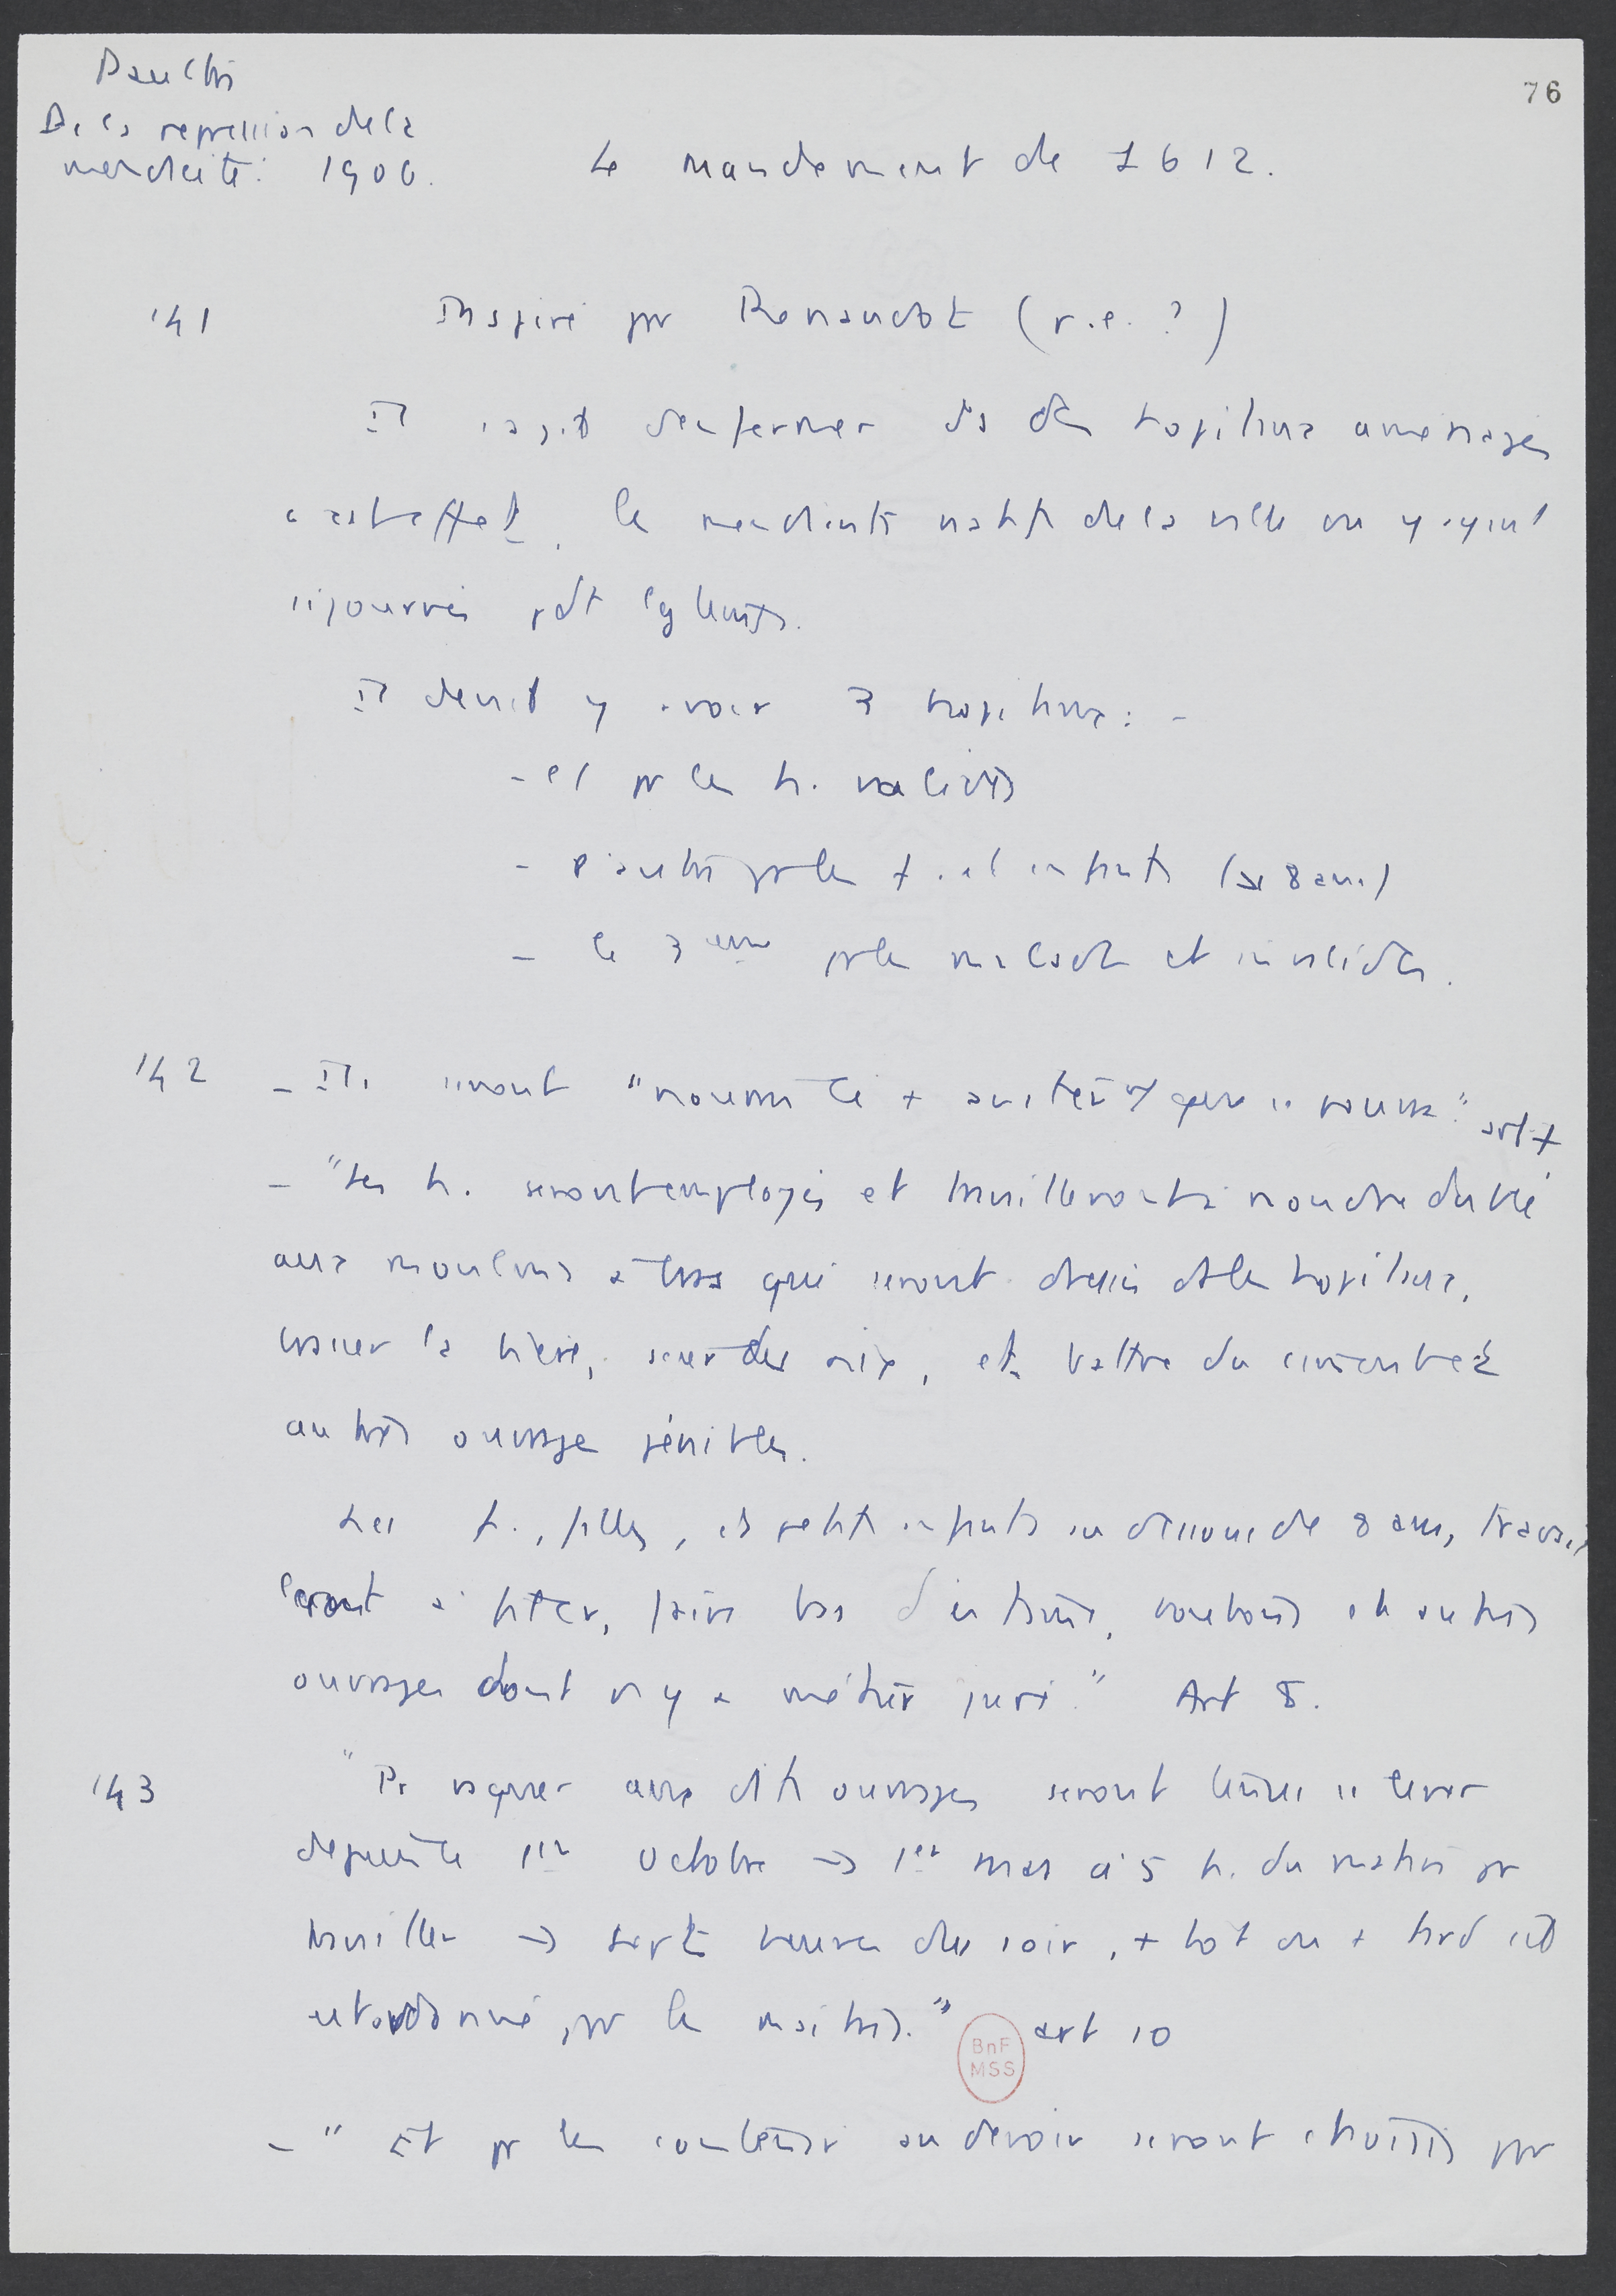 76
De la repression de la
mendicité. 1906.
Le mandement de 1612.
141
Inspiré pr Renaudot (r.e. ?)
Il s'agit d'enfermer ds des hopitaux aménagés
à cet effet, les mendiants natifs de la ville ou y ayant
séjourné pdt lgtemps.
Il devait y avoir 3 hopitaux : -
- pr les h. valides
- d'autres pr les f. et enfants (8 ans)
- le 3eme pr les malades et invalides.
142
- Ils seront "nourris le + austèrement" art
- "Les h. seront employés et travailleront à moudre du blé
aux moulins à bras qui seront dressés ds les hopitaux,
brasser la bière, scier des aix, et battre du ciment et
autres ouvrages pénibles.
Les f., filles, et petits enfants au dessous de 8 ans, travail
leront à filer, faire bas d'estame, boutons et autres
ouvrages dont il n'y a métier juré." Art 8.
143
"Pr vaquer aux dits ouvrages seront tenus se lever
depuis le 1er octobre → 1er mars à 5 h. du matin pr
travailler → sept heures du soir, + tot ou + tard
ordonné, pr les maitres." art 10
BnF
MSS
- "Et pr les contenir au devoir seront choisis par